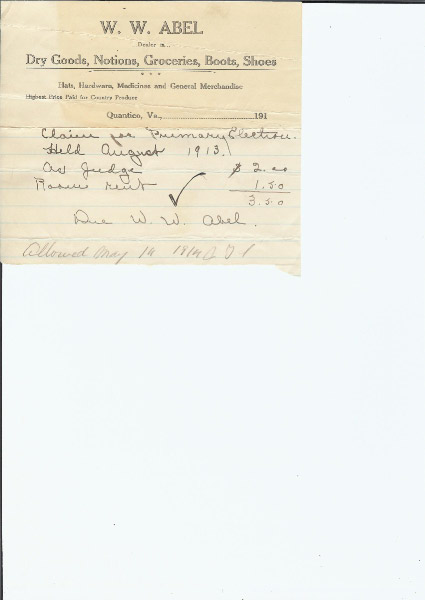 W. W. ABEL
Dealer in...
Dry Goods, Notions, Groceries, Boots, Shoes
Hats, Hardware, Medicines and General Merchandise
Highest Price Paid for Country Produce
Quantico, Va., 191
Claim for Primary Election.
Held August 1913.
As Judge $ 2.00
Room rent 1.50
3.50
Due W. W. Abel.
Allowed May 14 1914